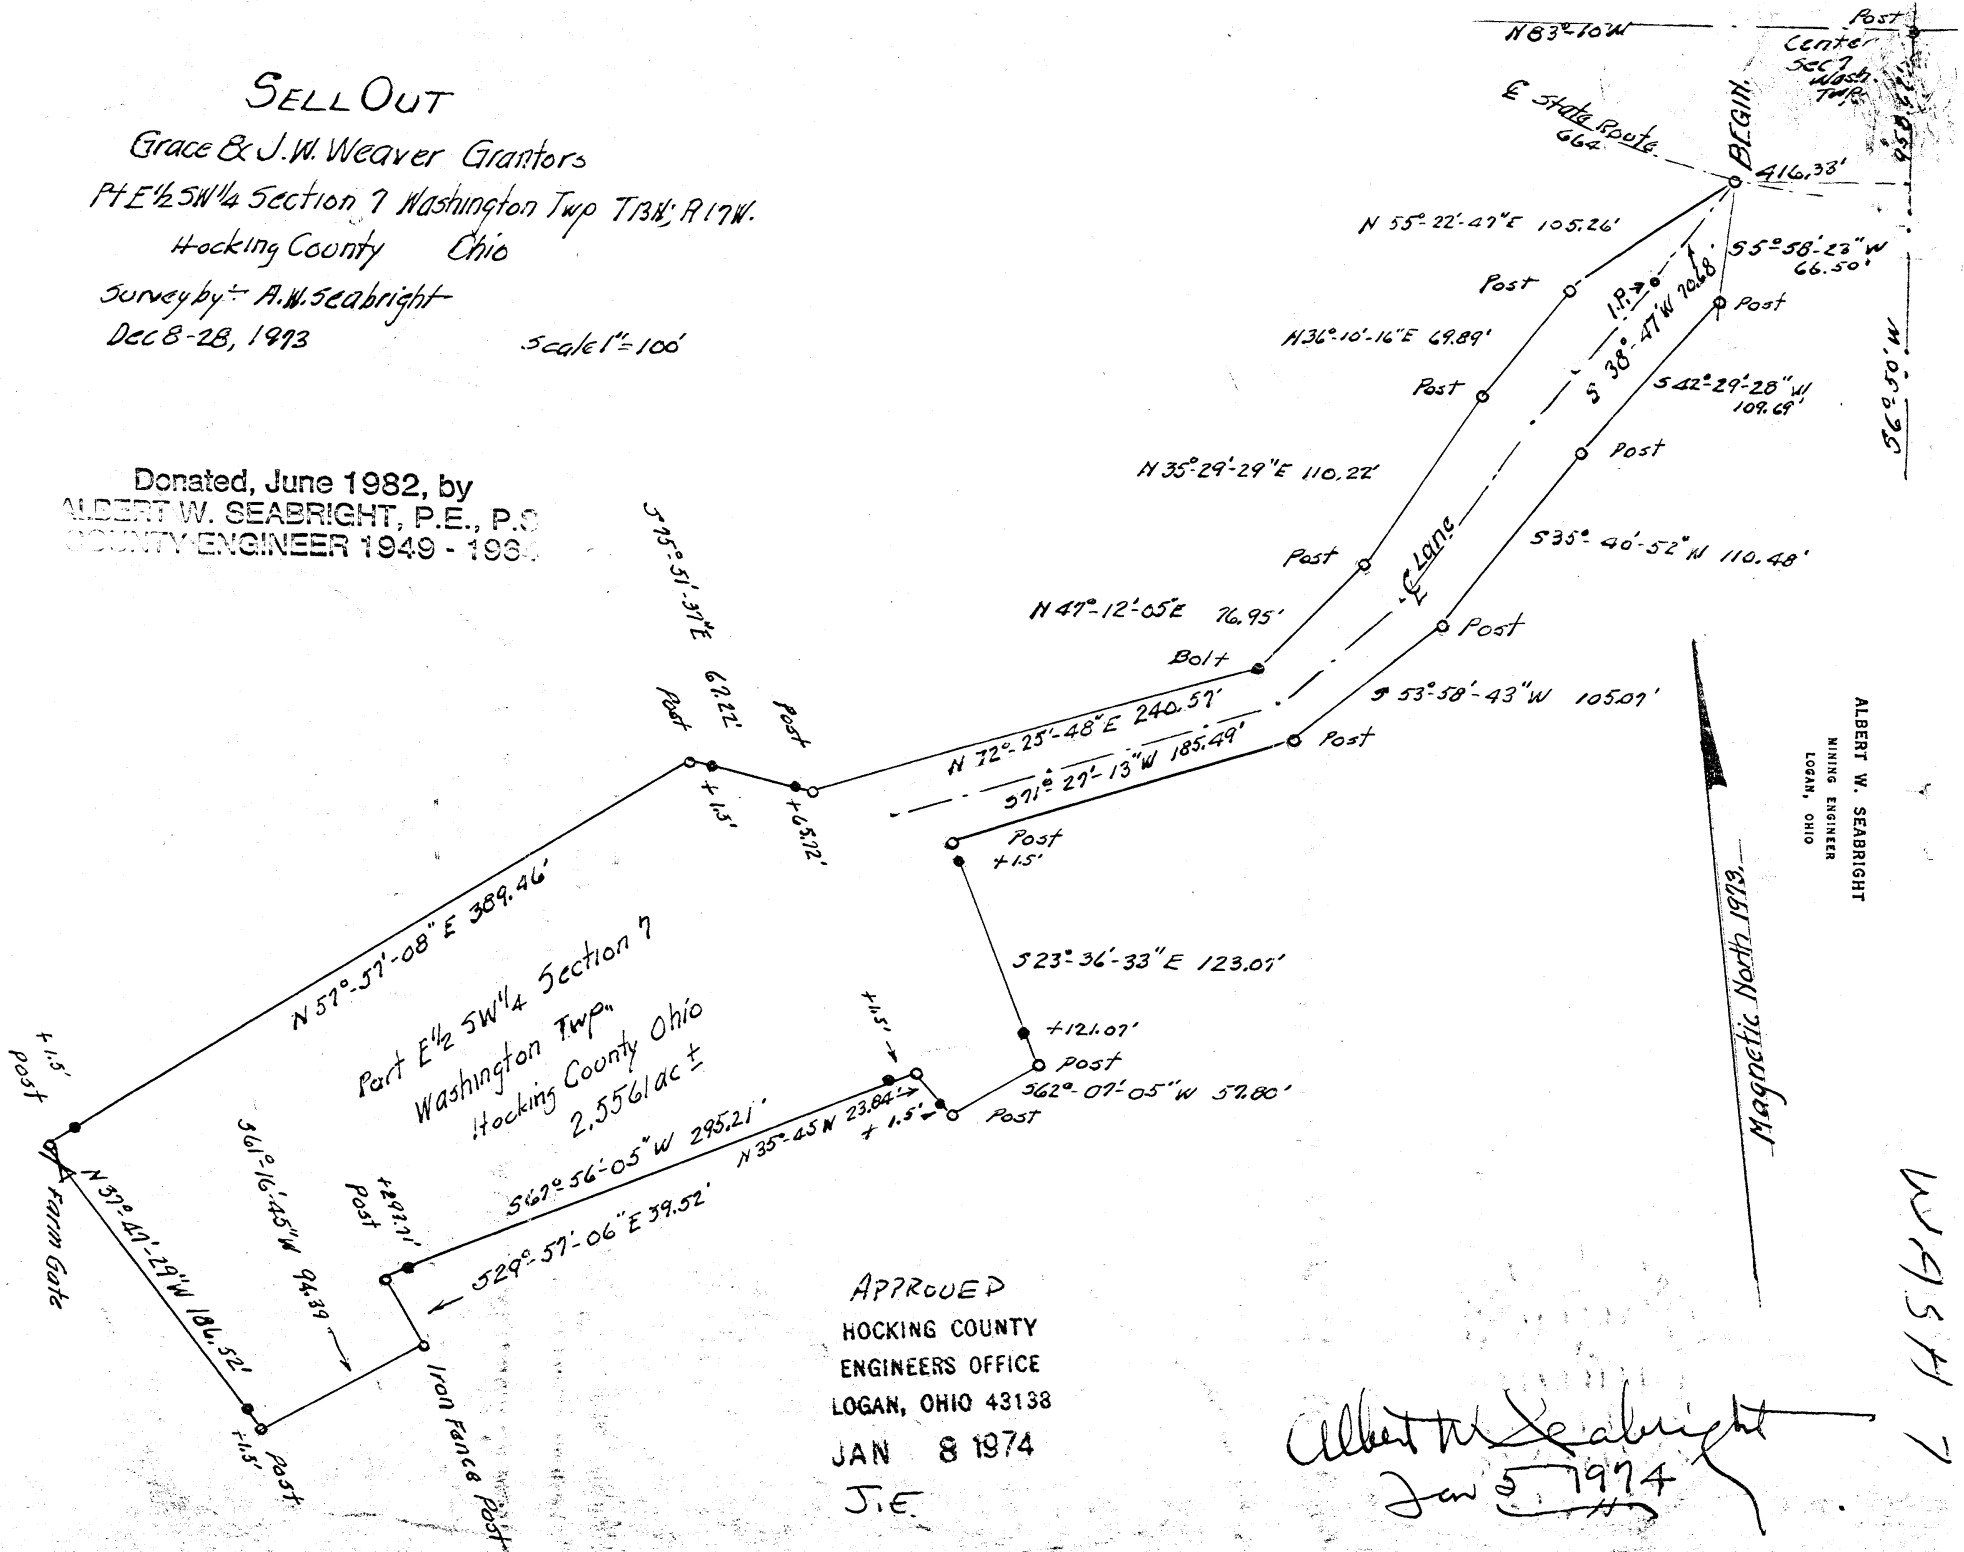 SELL OUT
Grace & J.W. Weaver Grantors
Pt E½ SW¼ Section 7 Washington Twp T13N; R17W.
Hocking County Ohio
Survey by:- A.W. Seabright
Dec 8-28, 1973
Scale 1"=100'
Donated, June 1982, by
ALBERT W. SEABRIGHT, P.E., P.S
COUNTY ENGINEER 1949 -
N83°-10'W
Post
Center
Sec 7
Wash.
Twp.
℄ State Route
664
BEGIN.
416.33'
S6°-50'W
N 55°-22'-47"E 105.26'
S5°-58'-23"W
66.50'
Post
I.P.
Post
S 38°-47'W 70.68'
N36°-10'-16"E 69.89'
Post
S42°-29'-28"W
109.69'
Post
N 35°-29'-29"E 110.22'
℄ Lane
S35°-40'-52"W 110.48'
Post
Post
N 47°-12'-05"E 76.95'
Bolt
S 53°-58'-43"W 105.07'
Post
N 72°-25'-48"E 240.57'
S71°-27'-13"W 185.49'
S75°-51'-37"E 67.22'
Post
Post
+1.5'
+65.72'
Post
+1.5'
N 57°-57'-08"E 389.46'
S23°-36'-33"E 123.07'
+121.07'
Post
S62°-07'-05"W 57.80'
Post
+1.5'
+1.5'
N35°-45'W 23.84'
Part E½ SW¼ Section 7
Washington Twp.
Hocking County Ohio
2.5561 ac ±
S67°-56'-05"W 295.21'
+293.71'
Post
S29°-57'-06"E 39.52'
+1.5'
Post
Farm Gate
N37°-47'-29"W 186.52'
S61°-16'-45"W 94.39
+1.5'
Post
Iron Fence Post
Magnetic North 1973.
ALBERT W. SEABRIGHT
MINING ENGINEER
LOGAN, OHIO
WASH 7
APPROVED
HOCKING COUNTY
ENGINEERS OFFICE
LOGAN, OHIO 43138
JAN 8 1974
J.E.
Albert W Seabright
Jan 5, 1974